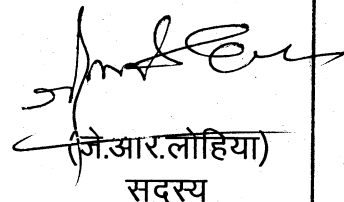 (जे.आर.लोहिया)
सदस्य